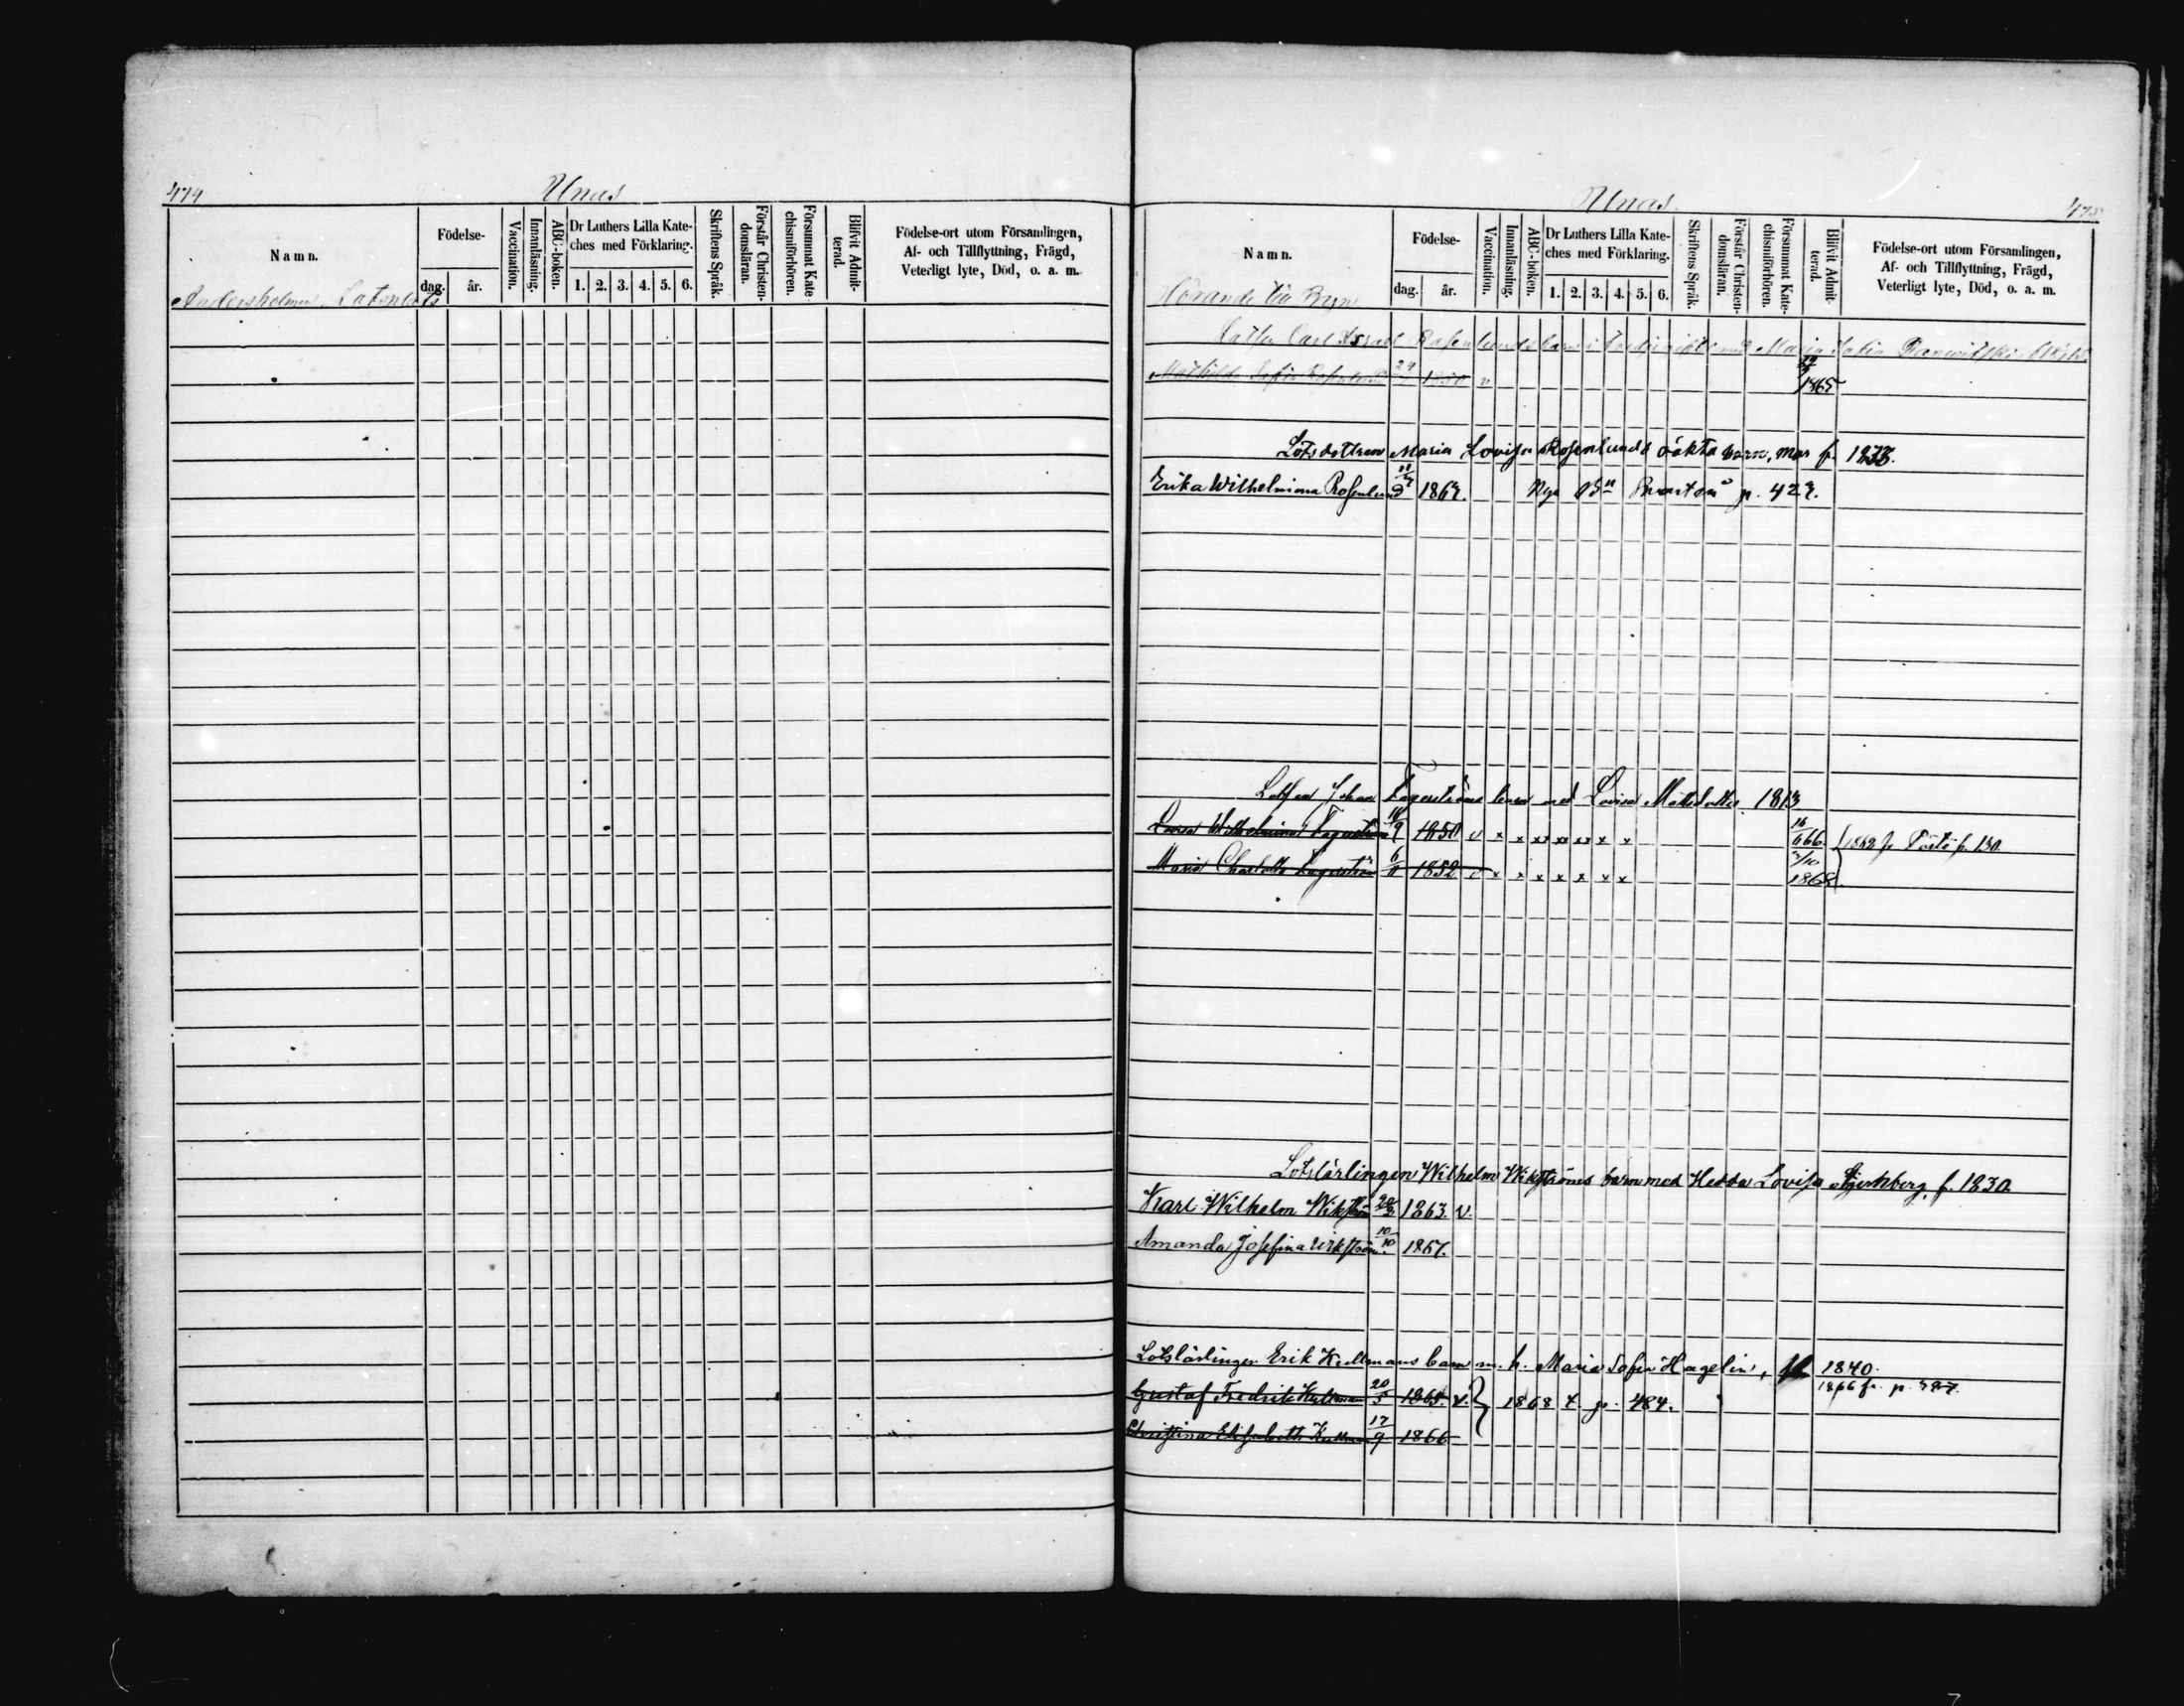 474
Unas
Namn.
Födelse-
dag.
år.
Vaccination.
Innanläsning.
ABC-boken.
Dr Luthers Lilla Kate-
ches med Förklaring.
1. 2. 3. 4. 5. 6.
Skriftens Språk.
Förstår Christen-
domsläran.
Försummat Kate-
chismiförhören.
Blifvit Admit-
terad.
Födelse-ort utom Församlingen,
Af- och Tillflyttning, Frägd,
Veterligt lyte, Död, o. a. m.
Andersholmen,
Unas.
475
Namn.
Födelse-
dag.
år.
Vaccination.
Innanläsning.
ABC-boken.
Dr Luthers Lilla Kate-
ches med Förklaring.
1. 2. 3. 4. 5. 6.
Skriftens Språk.
Förstår Christen-
domsläran.
Försummat Kate-
chismiförhören.
Blifvit Admit-
terad.
Födelse-ort utom Församlingen,
Af- och Tillflyttning, Frägd,
Veterligt lyte, Död, o. a. m.
Hörande till Byn
Lotsen Carl Israel Rosenlunds barn i med Maria Sofia
Mathilda Sofia Rosenlund 24 1850 v 1865
Lotsdottren Maria Lovisa Rosenlunds oäkta barn, mor f. 1833.
Erika Wilhelmina Rosenlund 11 1867. Nya p. 427.
Lotsen Johan Lagerströms barn med Lovisa Mattsdotter 1813
Lovisa Wilhelmina Lagerström 11/9 1850 v x x xx xx xx x x 16/6 66. 1862 fr. p. 130.
Maria Charlotta Lagerström 6/11 1852 v x x x x x x x /10 1868
Lotslärlingen Wilhelm Wikströms barn med Hedda Lovisa f. 1830.
Karl Wilhelm Wikström 1863. v.
Amanda Josefina Wikström. 10/10 1867.
Lotslärlingen Erik Kullmans barn m. h. Maria Sofia Hagelin, 1840.
1866 fr. p.
Gustaf Fredrik Kullman 20/5 1865. v. } 1868 t. p. 484.
Christina Elisabeth Kullman 17/9 1866